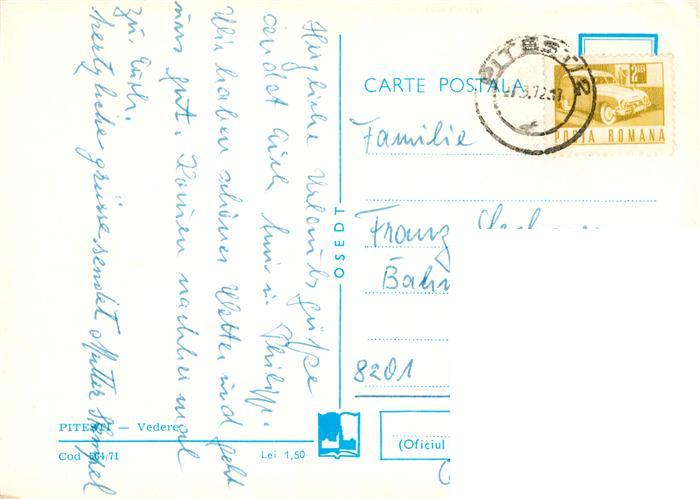 Herzliche Urlaubsgrüße
sendet Euch Euer Philipp.
Wir haben schönes Wetter und geht
uns gut. Kommen nachher mal
zu Euch.
herzliche grüsse sendet Mutter
PITEȘTI — Vedere
Cod 564/71
Lei 1,50
OSEDT
CARTE POSTALA
PITESTI 2
2 LEI
POSTA ROMANA
Familie
Franz
Bahn
8201
(Oficiul